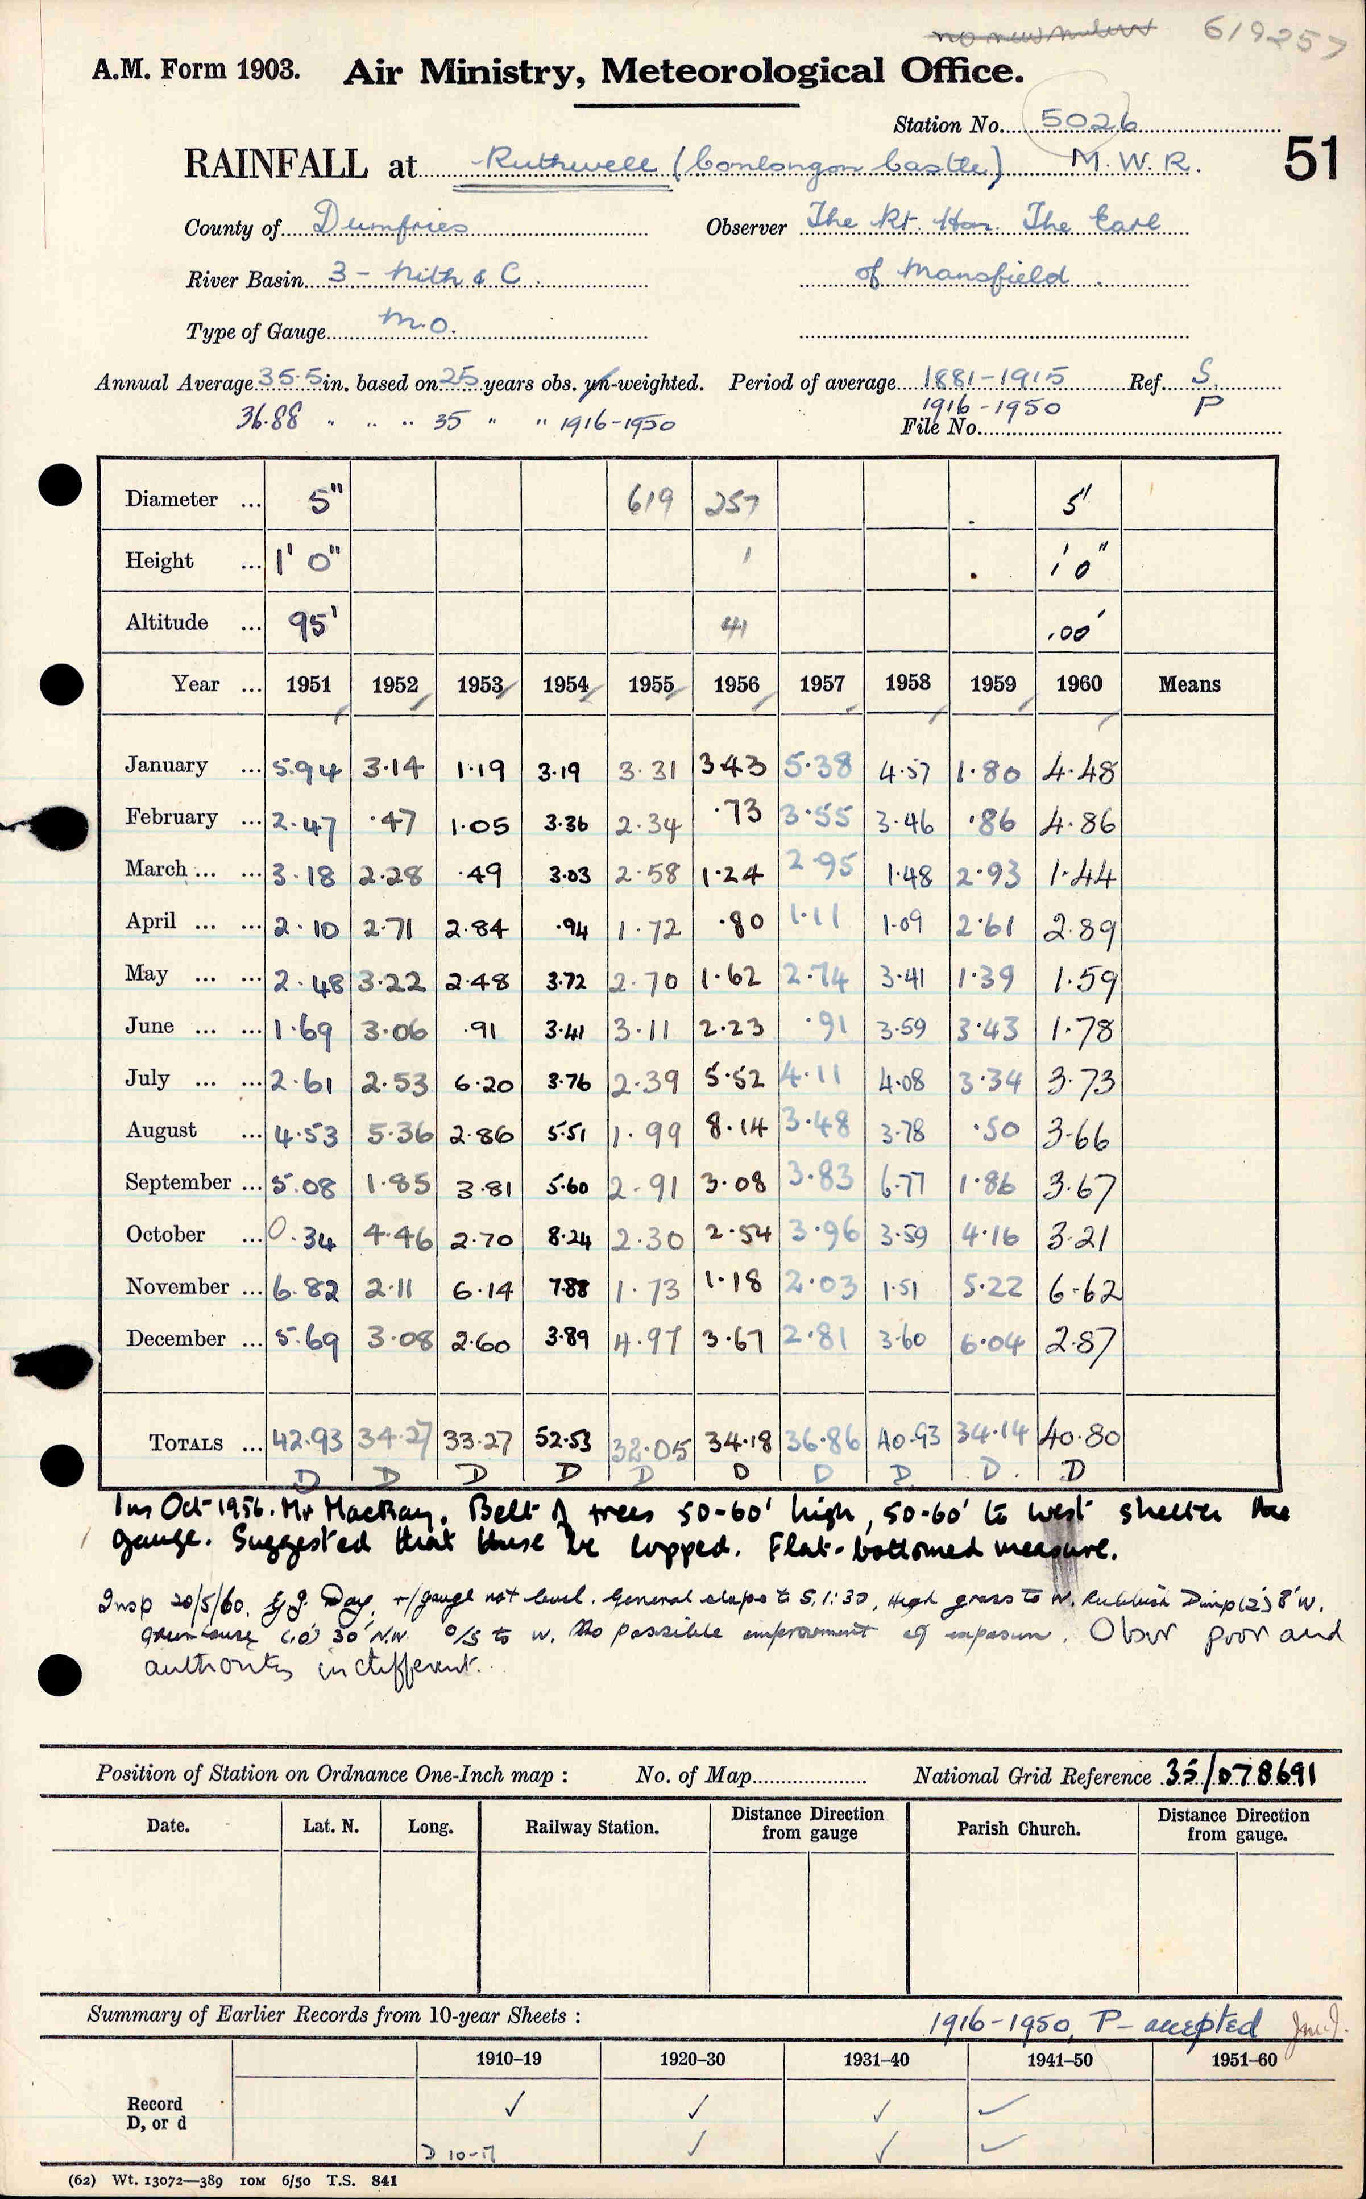 no new number 619257
A.M. Form 1903. Air Ministry, Meteorological Office.
Station No. 5026
RAINFALL at Ruthwell (Comlongon Castle) M.W.R. 51
County of Dumfries Observer The Rt. Hon. The Earl
River Basin 3 - Nith & C. of Mansfield
Type of Gauge M.O.
Annual Average 35.5 in. based on 25 years obs. un-weighted. Period of average 1881-1915 Ref. S.
36.88 " " " 35 " " 1916-1950 1916-1950 P
File No.
Diameter ... 5" 619 257 5"
Height ... 1' 0" 1 1' 0"
Altitude ... 95' 41 100'
Year ... 1951 1952 1953 1954 1955 1956 1957 1958 1959 1960 Means
January ... 5.94 3.14 1.19 3.19 3.31 3.43 5.38 4.57 1.80 4.48
February ... 2.47 .47 1.05 3.36 2.34 .73 3.55 3.46 .86 4.86
March ... ... 3.18 2.28 .49 3.03 2.58 1.24 2.95 1.48 2.93 1.44
April ... ... 2.10 2.71 2.84 .94 1.72 .80 1.11 1.09 2.61 2.89
May ... ... 2.48 3.22 2.48 3.72 2.70 1.62 2.74 3.41 1.39 1.59
June ... ... 1.69 3.06 .91 3.41 3.11 2.23 .91 3.59 3.43 1.78
July ... ... 2.61 2.53 6.20 3.76 2.39 5.52 4.11 4.08 3.34 3.73
August ... 4.53 5.36 2.86 5.51 1.99 8.14 3.48 3.78 .50 3.66
September ... 5.08 1.85 3.81 5.60 2.91 3.08 3.83 6.77 1.86 3.67
October ... 0.34 4.46 2.70 8.24 2.30 2.54 3.96 3.59 4.16 3.21
November ... 6.82 2.11 6.14 7.88 1.73 1.18 2.03 1.51 5.22 6.62
December ... 5.69 3.08 2.60 3.89 4.97 3.67 2.81 3.60 6.04 2.87
TOTALS ... 42.93 34.27 33.27 52.53 32.05 34.18 36.86 40.93 34.14 40.80
D D D D D D D D D. D
Ins Oct 1956. Mr MacKay. Belt of trees 50-60' high, 50-60' to west shelter the
gauge. Suggested that these be lopped. Flat-bottomed measure.
Insp 20/5/60. G.J. Day. r/gauge not level. General slope to S, 1:30, High grass to W. Rubbish Dump (2') 8' W.
greenhouse (10') 30' N.W. o/s to W. No possible improvement of exposure. Obsr poor and
authorities indifferent.
Position of Station on Ordnance One-Inch map : No. of Map National Grid Reference 35/078691
Date. Lat. N. Long. Railway Station. Distance Direction from gauge Parish Church. Distance Direction from gauge.
Summary of Earlier Records from 10-year Sheets : 1916-1950, P - accepted
1910–19 1920–30 1931–40 1941–50 1951–60
Record ✓ ✓ ✓ ✓
D, or d D 10-17 ✓ ✓ ✓
(62) Wt. 13072—389 10M 6/50 T.S. 841